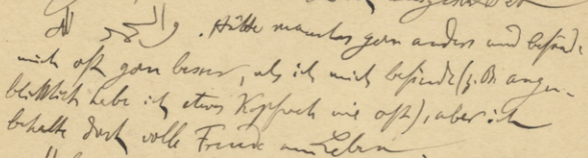 . Hätte manches gern anders und befände
mich oft gern besser, als ich mich befinde (z. B. augen-
blicklich habe ich etwas Kopfweh wie oft), aber ich
behalte doch volle Freude am Leben